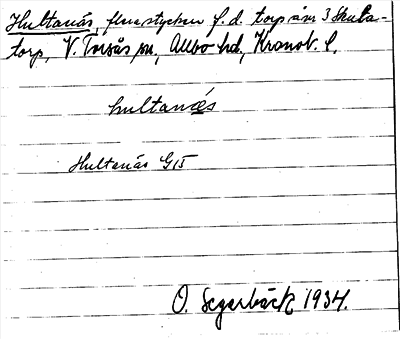 Hultanäs, fleustycken f. d. torp inr 3 Skula-
torp, V. Torsås sn, Allbo hd, Kronob. l.
hultanäs
Hultanäs G15
O. Segerbäck 1934.